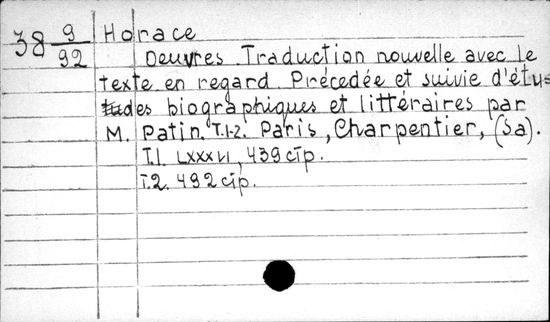 38 9/92 Horace
Oeuvres. Traduction nouvelle avec le
texte en regard. Précedée et suivie d'étu=
des biographiques et littéraires par
M. Patin. T.1-2. Paris, Charpentier, (Sa).
T.1. LXXXVI, 439 стр.
T.2. 492 стр.